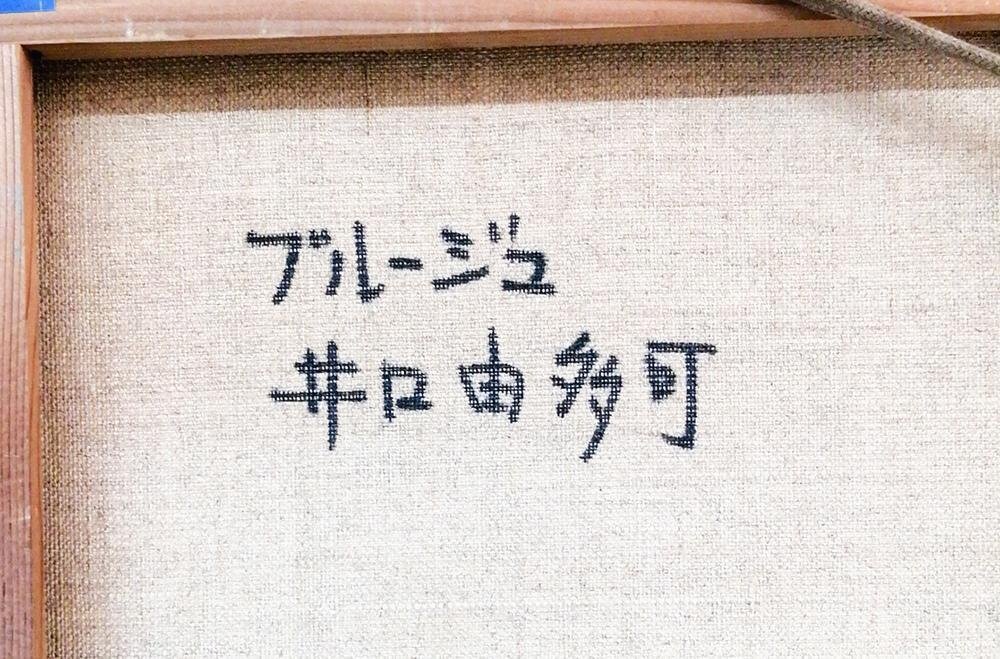 ブルージュ
井口由多可